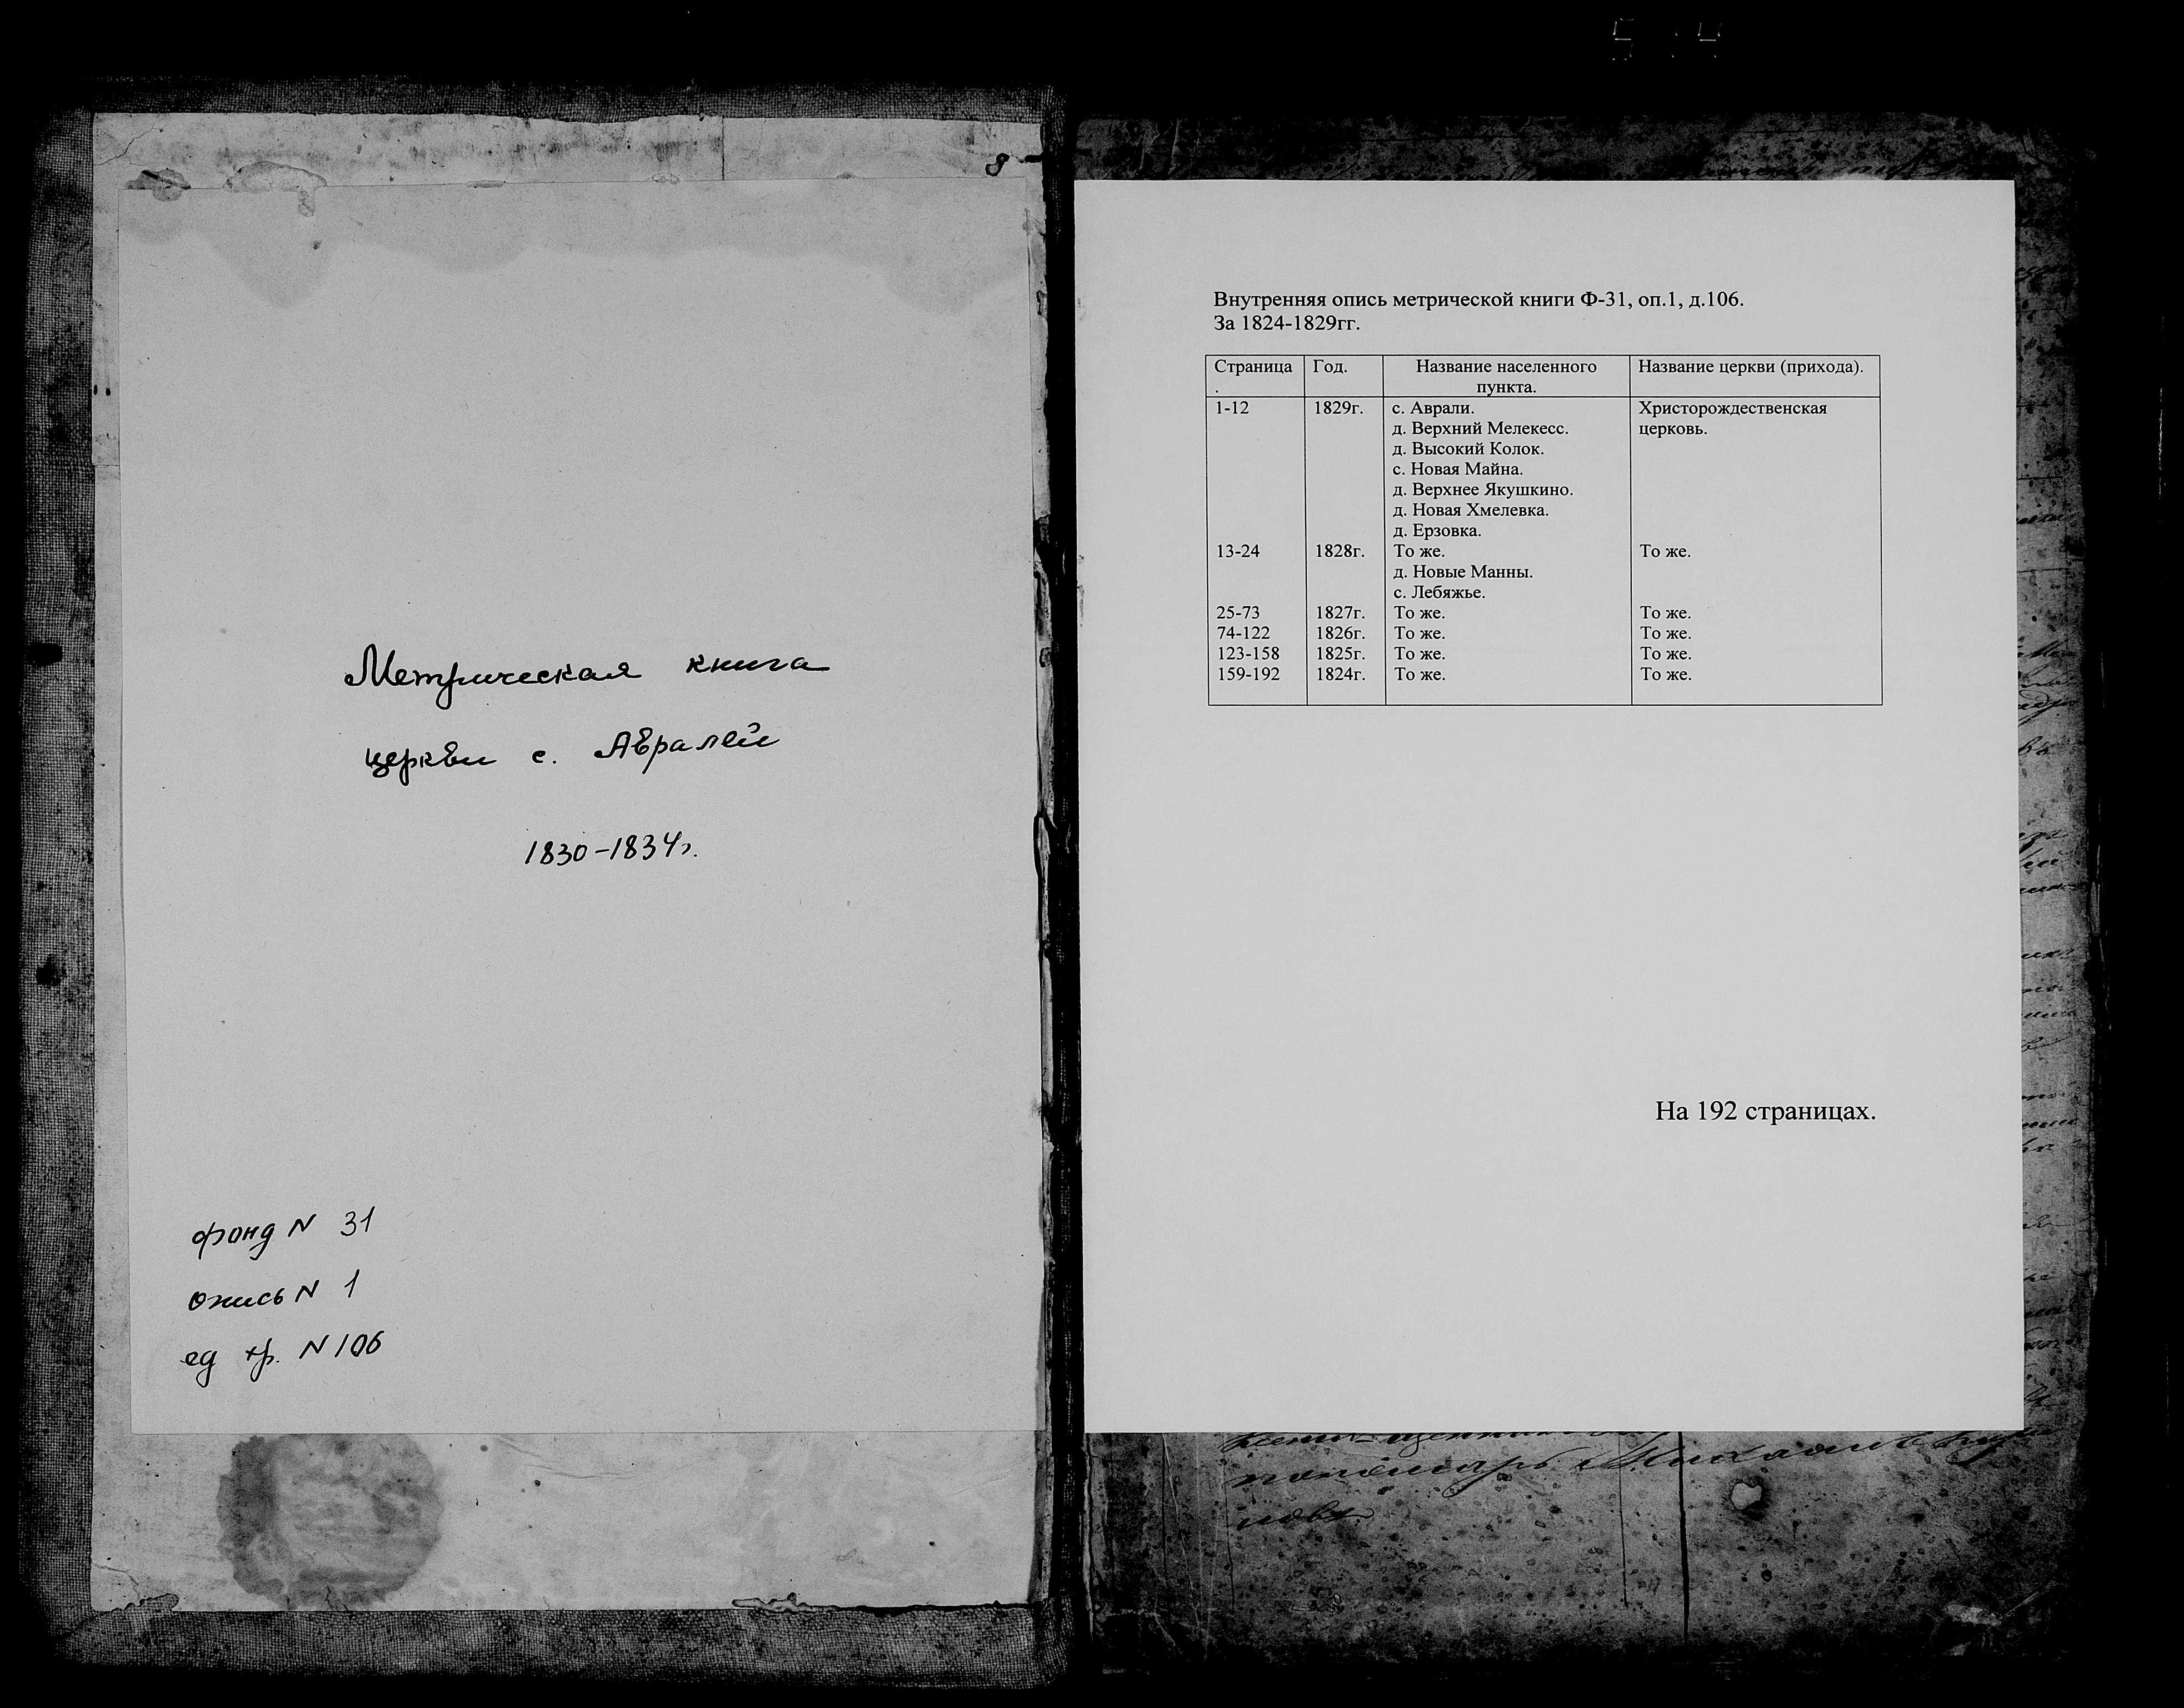 8
Метрическая книга
церкви с. Авралей
1830-1834г.
фонд N 31
опись N 1
ед хр. N 106
Внутренняя опись метрической книги Ф-31, оп.1, д.106.
За 1824-1829гг.
Страница. Год. Название населенного пункта. Название церкви (прихода).
1-12 1829г. с. Аврали. Христорождественская
д. Верхний Мелекесс. церковь.
д. Высокий Колок.
с. Новая Майна.
д. Верхнее Якушкино.
д. Новая Хмелевка.
д. Ерзовка.
13-24 1828г. То же. То же.
д. Новые Манны.
с. Лебяжье.
25-73 1827г. То же. То же.
74-122 1826г. То же. То же.
123-158 1825г. То же. То же.
159-192 1824г. То же. То же.
На 192 страницах.